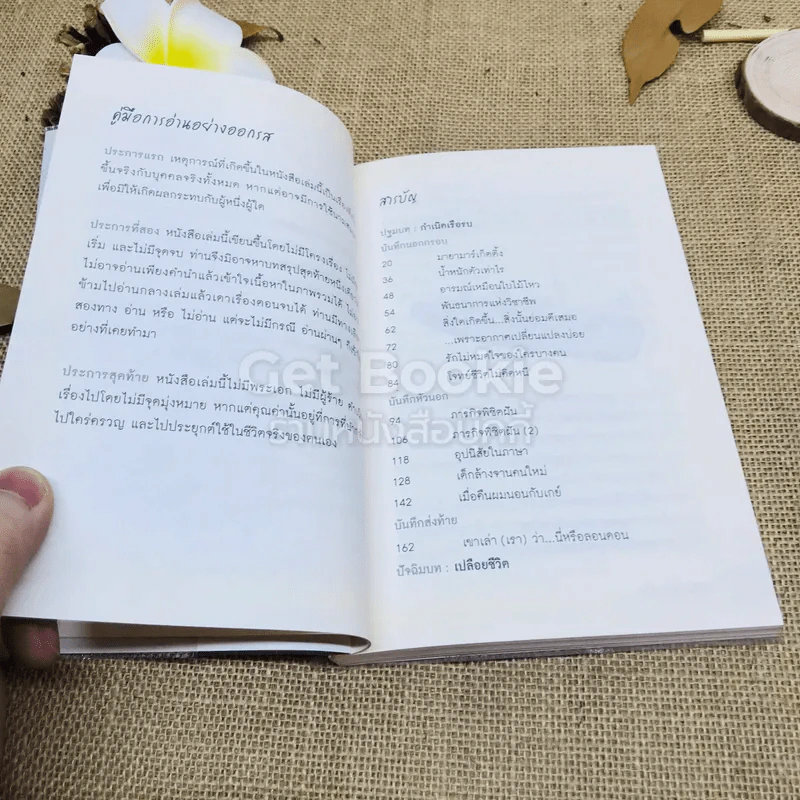 คู่มือการอ่านอย่างออกรส
ประการแรก เหตุการณ์ที่เกิดขึ้นในหนังสือเล่มนี้เป็นเรื่องที่
ขึ้นจริงกับบุคคลจริงทั้งหมด หากแต่อาจมีการใช้นาม
เพื่อมิให้เกิดผลกระทบกับผู้หนึ่งผู้ใด
ประการที่สอง หนังสือเล่มนี้เขียนขึ้นโดยไม่มีโครงเรื่อง
เริ่ม และไม่มีจุดจบ ท่านจึงมิอาจหาบทสรุปสุดท้ายหนึ่งเดียว
ไม่อาจอ่านเพียงคำนำแล้วเข้าใจเนื้อหาในภาพรวมได้
ข้ามไปอ่านกลางเล่มแล้วเดาเรื่องตอนจบได้ ท่านมีทาง
สองทาง อ่าน หรือ ไม่อ่าน แต่จะไม่มีกรณี อ่านผ่านๆ
อย่างที่เคยทำมา
ประการสุดท้าย หนังสือเล่มนี้ไม่มีพระเอก ไม่มีผู้ร้าย
เรื่องไปโดยไม่มีจุดมุ่งหมาย หากแต่คุณค่านั้นอยู่ที่การที่
ไปใคร่ครวญ และไปประยุกต์ใช้ในชีวิตจริงของตนเอง
สารบัญ
ปฐมบท : กำเนิดเรือรบ
บันทึกนอกกรอบ
20 มายามาร์เกิตติ้ง
36 น้ำหนักตัวเท่าไร
48 อารมณ์เหมือนใบไม้ไหว
54 พันธนาการแห่งวิชาชีพ
62 สิ่งใดเกิดขึ้น...สิ่งนั้นย่อมดีเสมอ
72 ...เพราะอากาศเปลี่ยนแปลงบ่อย
80 รักไม่หมดใจของใครบางคน
84 โจทย์ชีวิตไม่คิดหนี
บันทึกหัวนอก
94 ภารกิจพิชิตฝัน
106 ภารกิจพิชิตฝัน (2)
118 อุปนิสัยในภาษา
128 เด็กล้างจานคนใหม่
142 เมื่อคืนผมนอนกับเกย์
บันทึกส่งท้าย
162 เขาเล่า (เรา) ว่า...นี่หรือลอนดอน
ปัจฉิมบท : เปลือยชีวิต
Get Bookie
ราแหนังสือที่นี่